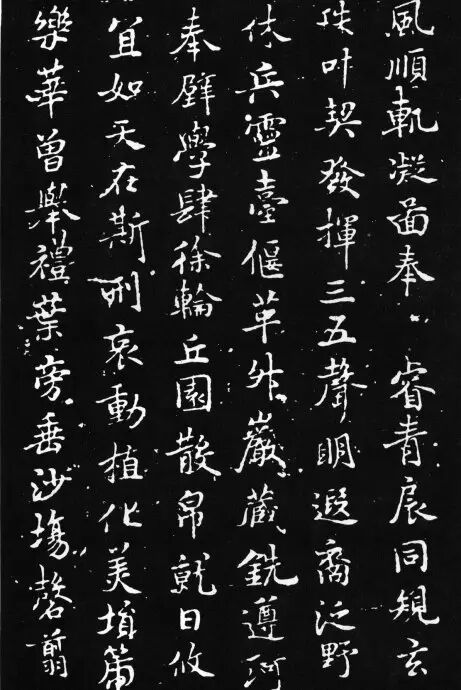 風順軌凝啚奉睿青扆同規玄
珠叶契發揮三五聲明遐裔泛野
休兵靈臺偃革升巖藏銑遵河
奉璧學肆徐輪丘園散帛就日攸
宜如天在斯刑哀動植化美塤篪
樂華曾舉禮葉旁垂沙場罄翦